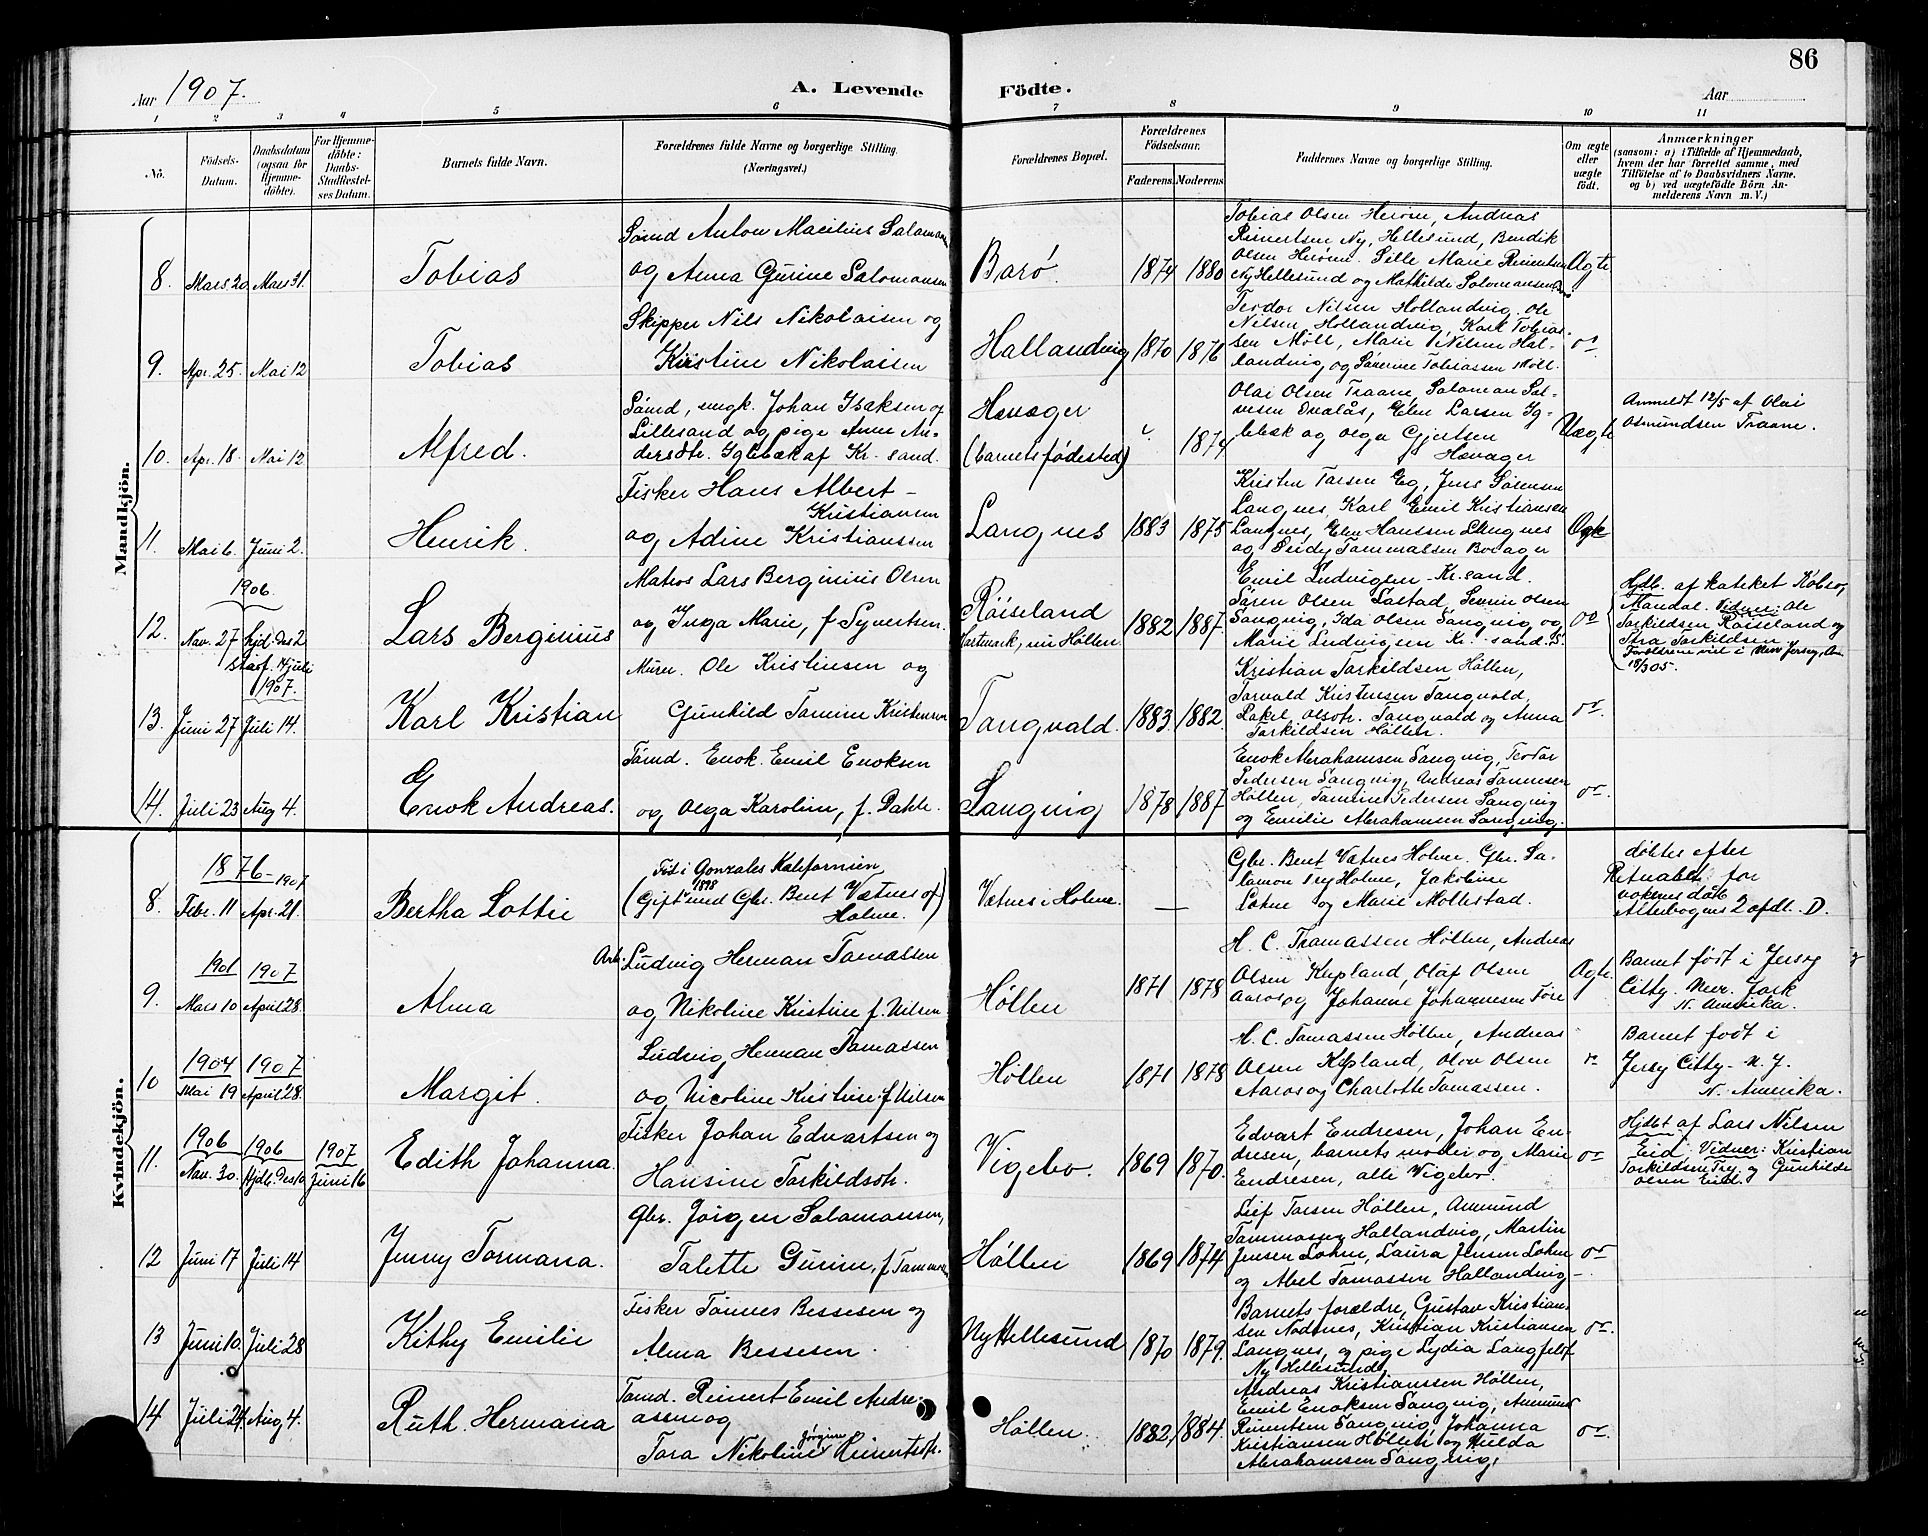 86
Aar 1907.
A. Levende Födte.
Aar
1 2 3 4 5 6 7 8 9 10 11
No.
Födsels-Datum.
Daabsdatum (ogsaa for Hjemmedöbte).
For Hjemmedöbte: Daabs-Stadfæstelses Datum.
Barnets fulde Navn.
Forældrenes fulde Navne og borgerlige Stilling. (Næringsvei.)
Forældrenes Bopæl.
Forældrenes Födselsaar.
Faderens. Moderens.
Faddernes Navne og borgerlige Stilling.
Om ægte eller uægte födt.
Anmærkninger
(saasom: a) i Tilfælde af Hjemmedaab, hvem der har forrettet samme, med Tilföielse af to Daabsvidners Navne. og b) ved uægtefödte Börn Anmelderens Navn m. V.)
Mandkjön.
8. Mars 20 Mars 31.
Tobias
Sømd Anton Macilius Salamonsen
og Anna Gurine Salomonsen
Barø
1874 1880
Tobias Olsen Herøen, Andreas
Reinertsen Ny, Hellesund, Bendik
Olsen Herøen. Sille Marie Reinertsen
Ny Hellesund og Mathilde Salomonsen
Ægte
9. Apr. 25. Mai 12
Tobias
Skipper Nils Nikolaisen og
Kristine Nikolaisen
Hallandvig
1870 1876
Teodor Nilsen Hollandvig, Ole
Nilsen, Hollandvig, Karl Tobias-
sen Møll, Marie Nilsen Hal-
landvig og Tobiassen Møll.
10. Apr. 18. Mai 12
Alfred.
Sømd, ungk. Johan Isaksen af
Lillesand og pige Anne An-
dersdtr. Iglebæk af Kr.sand.
Hævager
(barnets fødested)
1874
Olai Olsen Traane, Salomon Sal-
vesen Ovalås, Elen Larsen Ig-
lebæk og Olga Gjertsen
Hævager
Uægte
Anmeldt 12/5 af Olai
Osmundsen Traane.
11. Mai 6. Juni 2.
Henrik.
Fisker Hans Albert
Kristiansen
og Adine Kristianssen
Langnes
1883 1875
Kristen Tarsen Eg, Jens Sørensen
Langnes, Karl Emil Kristiansen
Langnes, Elen Hanssen Langnes
og Tammassen Bovager
Ægte
12. 1906
Nov. 27 Hjd. Des 2
1907.
Lars Berginius
Matros Lars Berginius Olsen
og Inga Marie, f. Syvertsen.
Røiseland
nu Høllen.
1882 1887.
Emil Ludvigsen Kr.sand.
Søren Olsen Sastad, Severin Olsen
Sangvig, Ida Olsen Sangvig og
Marie Ludvigsen Kr.sand. S.
Hjdb. af kateket
Mandal. Vidner: Ole
Torkildsen Røiseland og
Thea Torkildsen.
Forældrene viet i New Jersey, Am.
18/3 05.
13. Juni 27 Juli 14.
Karl Kristian
Murer. Ole Kristensen og
Gunhild Tomine Kristensen
Tangvald.
1883. 1882.
Kristian Torkildsen Høllen,
Torvald Kristensen Tangvald
Rakel Olsdtr. Tangvald og Anna
Torkildsen Høllen.
14. Juli 23 Aug 4.
Enok Andreas.
Tømd. Enok Emil Enoksen
og Olga Karoline, f. Dahle.
Sangvig
1878 1887
Enok Abrahamsen Sangvig, Teodor
Pedersen Sangvig, Andreas Tammesen
Høllen, Tomine Pedersen Sangvig
og Emilie Abrahamsen Sangvig.
Kvindekjön.
8. 1876 - 1907
Febr. 11 Apr. 21.
Bertha Lottie
Fød i Gonzales Kalifornien
(Gift 1898 med Gbr. Bent Vætnes af
Holme.)
Vætnes i Holme.
—
Gbr. Bent Vætnes Holme. Gbr. Sa-
lamon Try Holme, Jakobine
Lohne og Marie Mollestad.
døbtes efter
Ritualet for
voksnes dåb
Alterbogens 2 afdl. D.
9. 1901 1907
Mars 10 April 28.
Alma
Arb. Ludvig Herman Tomassen
og Nikoline Kristine f. Nilsen
Høllen
1871 1878
H. C. Tomassen Høllen, Andreas
Olsen Kupland, Olaf Olsen
Aaros og Johanne Johannesen Føre
Ægte
Barnet født i Jersey
Citty. New. Jork
N. Amerika.
10 1904 1907
Mai 19 April 28.
Margit.
Ludvig Herman Tomassen
og Nicoline Kristine f. Nilsen
Høllen
1871 1878
H. C. Tomassen Høllen, Andreas
Olsen Kupland, Olav Olsen
Aaros og Charlotte Tomassen.
Barnet født i
Jersy Citty - N. J.
N. Amerika.
11. 1906 1906 1907
Nov. 30. Hjdb. Des 10 Juni 16
Edith Johanna.
Fisker Johan Edvartsen og
Hansine Torkildsdtr.
Vigebo.
1869 1870.
Edvart Endresen, Johan En-
dresen, barnets moder og Marie
Endresen, alle Vigebo.
Hjdbt af Lars Nilsen
Eid. Vidner: Kristian
Torkildsen Try og Gunhilde
Olsen Eid.
12 Juni 17 Juli 14
Jenny Tormana.
Gbr. Jørgen Salamonsen,
Talette Gurine, f. Tammesen
Høllen
1869 1874
Leif Torsen Høllen, Anmund
Tammassen Hallandvig, Martin
Jensen Lohne, Laura Jensen Lohne
og Abel Tomassen Hallandvig
13 Juni 10. Juli 28
Kithy Emilie
Fisker Tønnes Bessesen og
Alma Bessesen.
Ny Hellesund
1870 1879.
Barnets forældre, Gustav Kristian-
sen Nodenes, Kristian Kristiansen
Langnes, og pige Lydia Langfeldt
Ny Hellesund.
14 Juli 24. Aug 4.
Ruth. Hermana
Tømd. Reinert Emil Andre-
assen og
Tora Nikoline Jørgine Reinertsdtr.
Høllen.
1882. 1884.
Andreas Kristianssen Høllen,
Emil Enoksen Sangvig, Anmund
Reinertsen Sangvig, Johanna
Kristiansen Høllen og Hulda
Abrahamsen Sangvig.